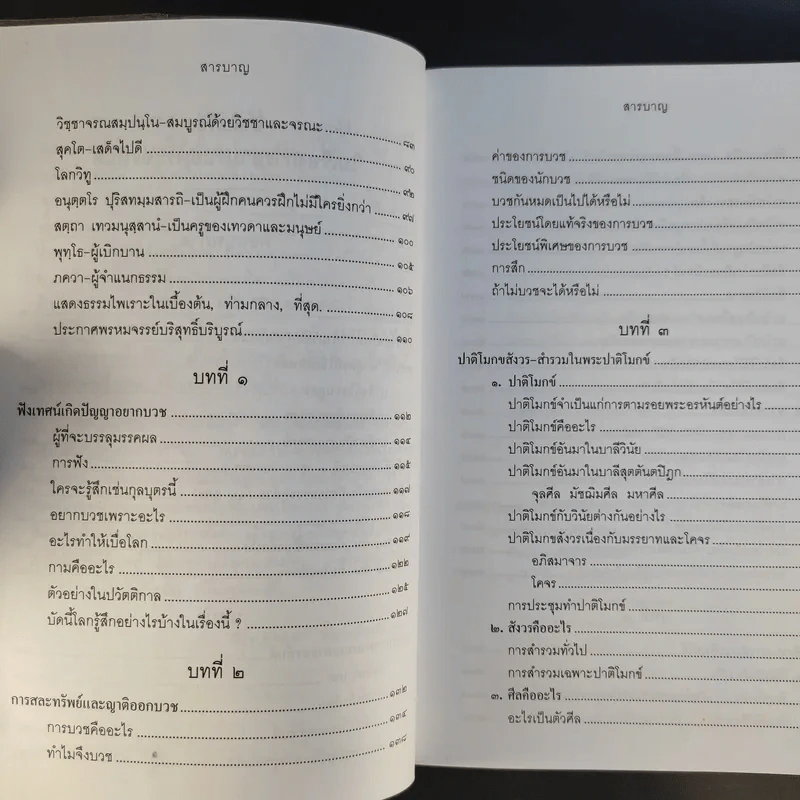 สารบาญ
วิชฺชาจรณสมฺปนฺโน-สมบูรณ์ด้วยวิชชาและจรณะ ๘๓
สุคโต-เสด็จไปดี ๙๐
โลกวิทู ๙๒
อนุตฺตโร ปุริสทมฺมสารถิ-เป็นผู้ฝึกคนควรฝึกไม่มีใครยิ่งกว่า ๙๗
สตฺถา เทวมนุสฺสานํ-เป็นครูของเทวดาและมนุษย์ ๑๐๐
พุทฺโธ-ผู้เบิกบาน ๑๐๕
ภควา-ผู้จำแนกธรรม ๑๐๖
แสดงธรรมไพเราะในเบื้องต้น, ท่ามกลาง, ที่สุด. ๑๐๘
ประกาศพรหมจรรย์บริสุทธิ์บริบูรณ์ ๑๑๐
บทที่ ๑
ฟังเทศน์เกิดปัญญาอยากบวช ๑๑๒
ผู้ที่จะบรรลุมรรคผล ๑๑๔
การฟัง ๑๑๕
ใครจะรู้สึกเช่นกุลบุตรนี้ ๑๑๗
อยากบวชเพราะอะไร ๑๑๘
อะไรทำให้เบื่อโลก ๑๑๙
กามคืออะไร ๑๒๒
ตัวอย่างในปวัตติกาล ๑๒๕
บัดนี้โลกรู้สึกอย่างไรบ้างในเรื่องนี้ ? ๑๒๗
บทที่ ๒
การสละทรัพย์และญาติออกบวช ๑๓๒
การบวชคืออะไร ๑๓๔
ทำไมจึงบวช ๑๓๘
สารบาญ
ค่าของการบวช
ชนิดของนักบวช
บวชกันหมดเป็นไปได้หรือไม่
ประโยชน์โดยแท้จริงของการบวช
ประโยชน์พิเศษของการบวช
การสึก
ถ้าไม่บวชจะได้หรือไม่
บทที่ ๓
ปาติโมกขสังวร-สำรวมในพระปาติโมกข์
๑. ปาติโมกข์
ปาติโมกข์จำเป็นแก่การตามรอยพระอรหันต์อย่างไร
ปาติโมกข์คืออะไร
ปาติโมกข์อันมาในบาลีวินัย
ปาติโมกข์อันมาในบาลีสุตตันตปิฎก
จุลศีล มัชฌิมศีล มหาศีล
ปาติโมกข์กับวินัยต่างกันอย่างไร
ปาติโมกขสังวรเนื่องกับมรรยาทและโคจร
อภิสมาจาร
โคจร
การประชุมทำปาติโมกข์
๒. สังวรคืออะไร
การสำรวมทั่วไป
การสำรวมเฉพาะปาติโมกข์
๓. ศีลคืออะไร
อะไรเป็นตัวศีล